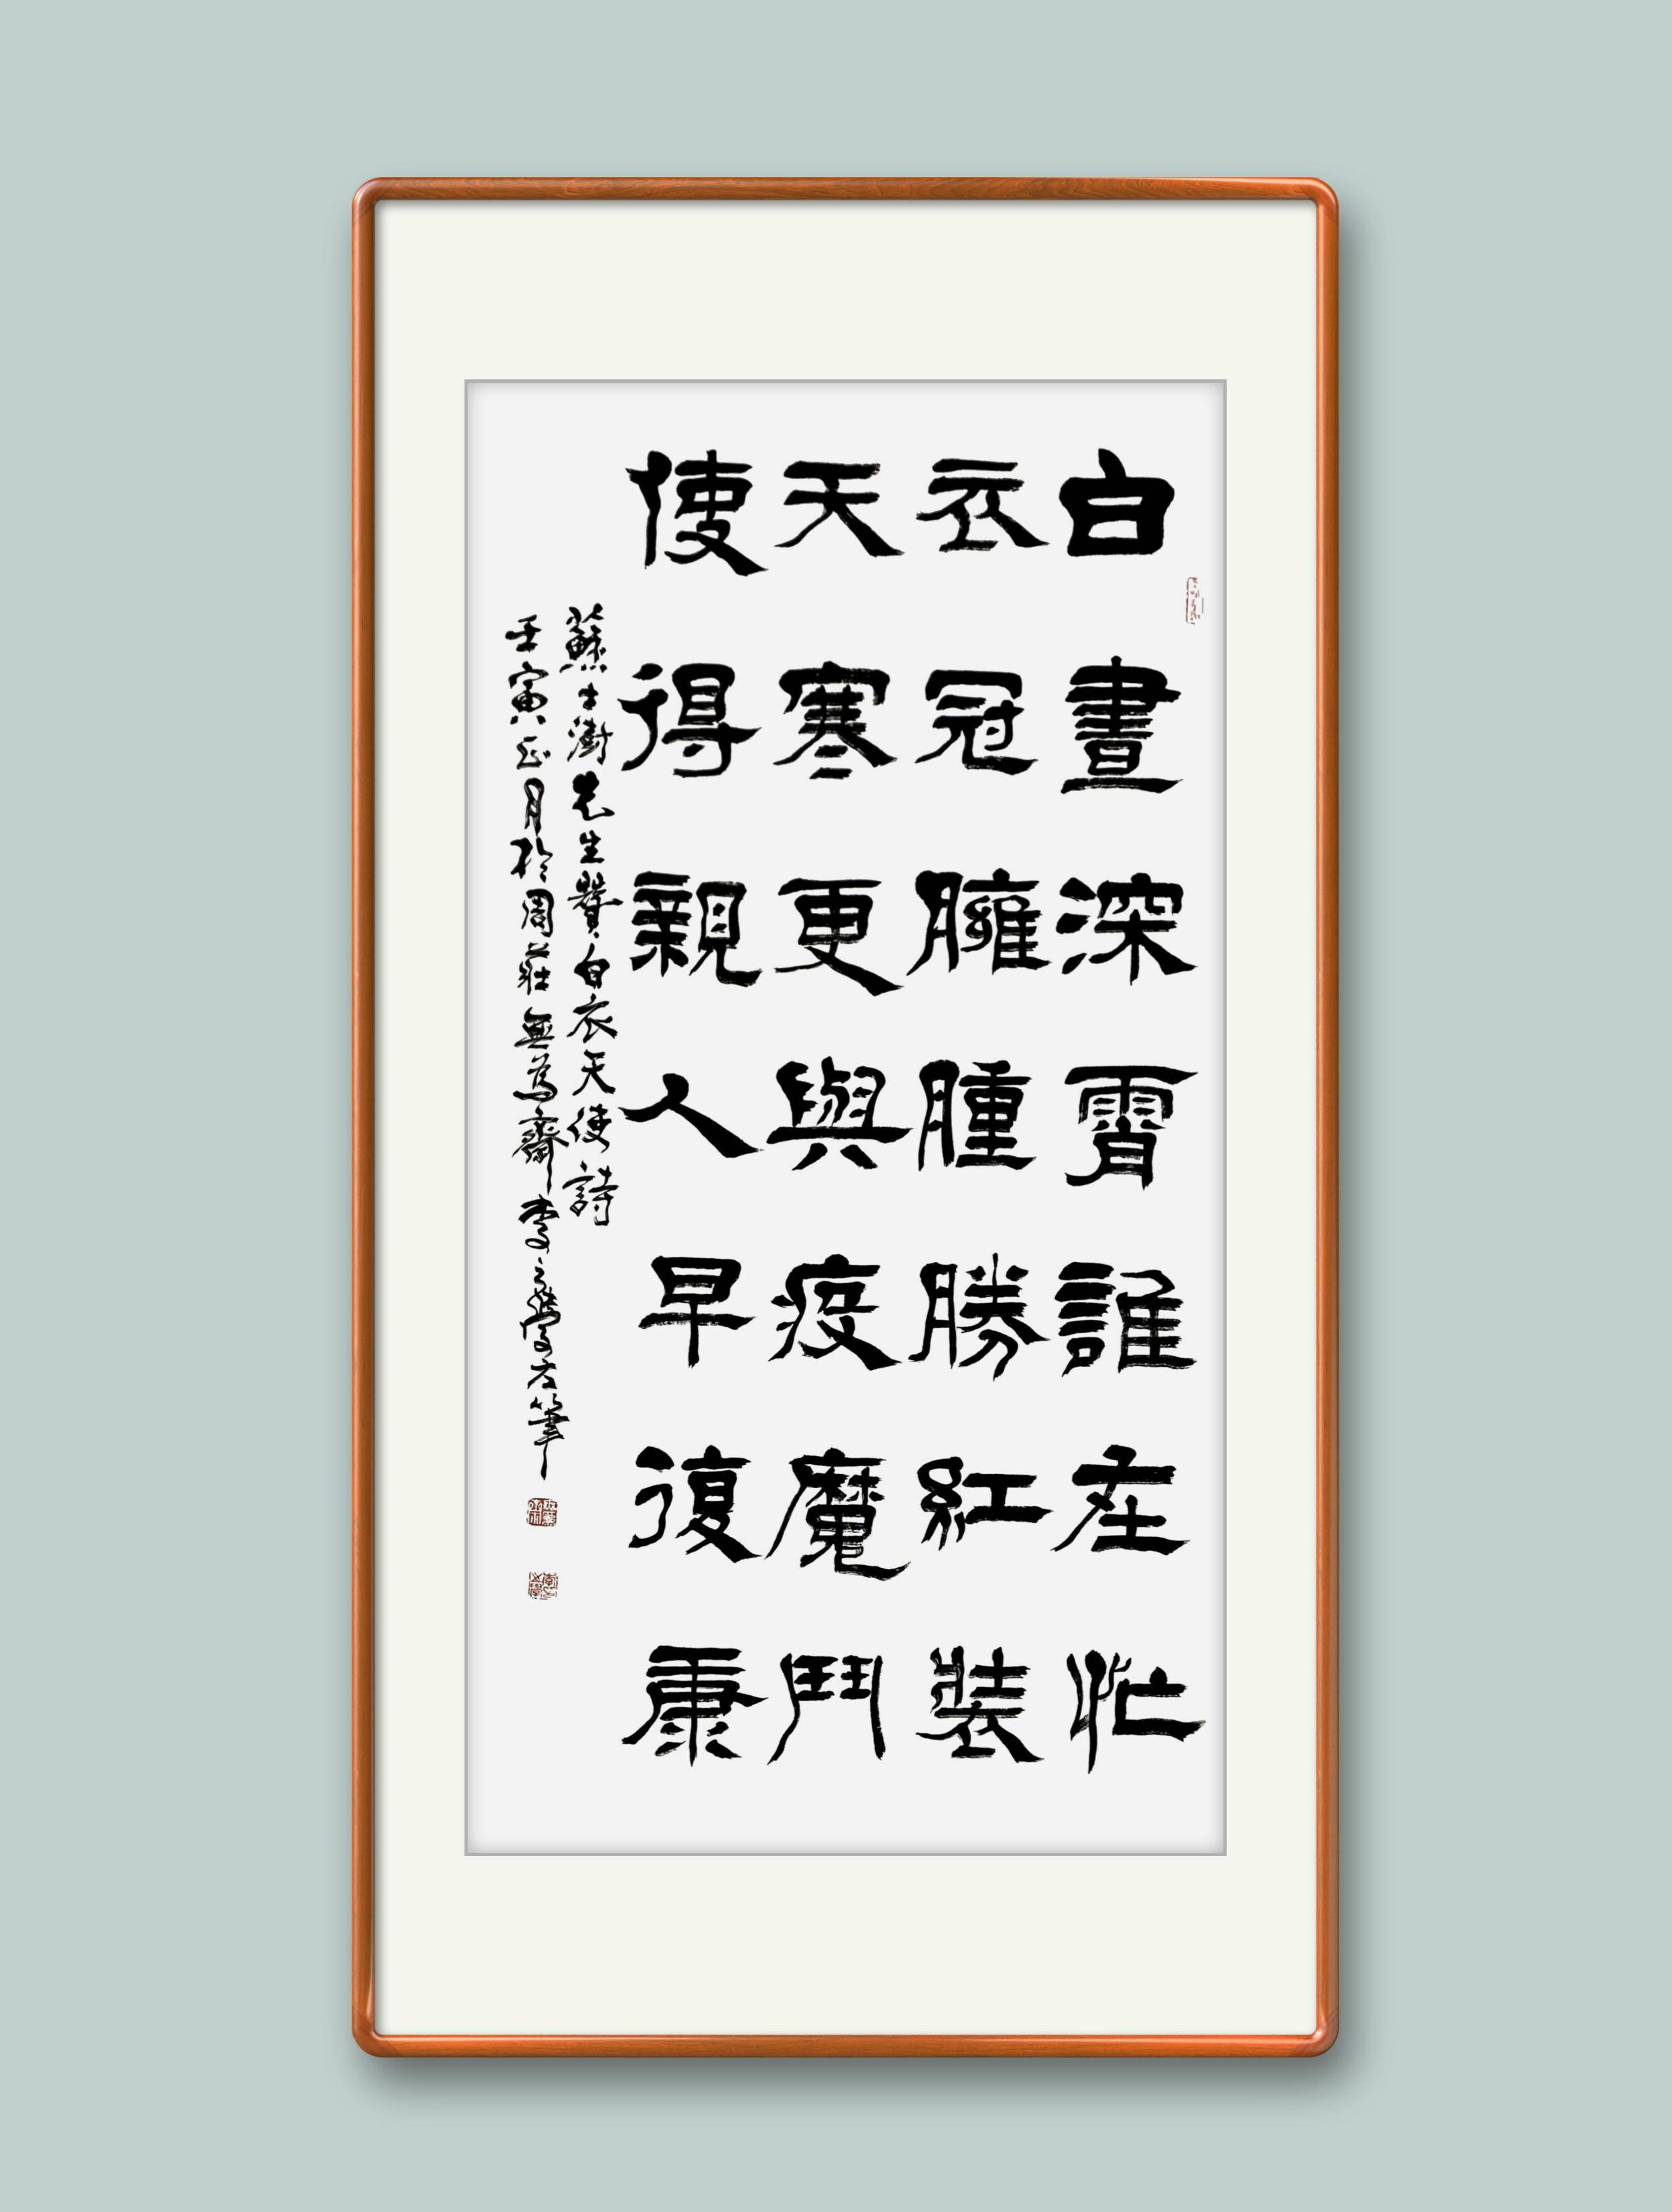 白晝深霄誰在忙
衣冠臃腫勝紅裝
天寒更與疫魔鬥
使得親人早復康
蘇士澍先生贊白衣天使詩
壬寅正月於周莊無為齋李
筆